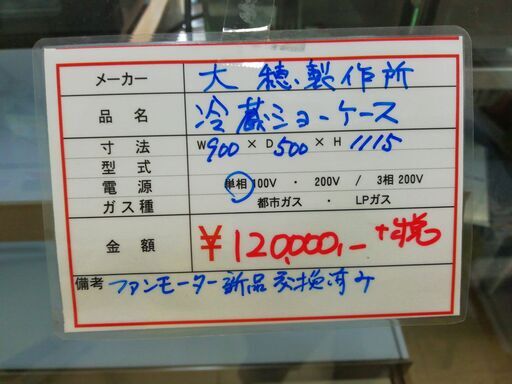 メーカー 大穂製作所
品名 冷蔵ショーケース
寸法 W900×D500×H1115
型式
電源 単相100V ・ 200V / 3相200V
ガス種 都市ガス ・ LPガス
金額 ¥120,000,- +税
備考 ファンモーター新品交換済み